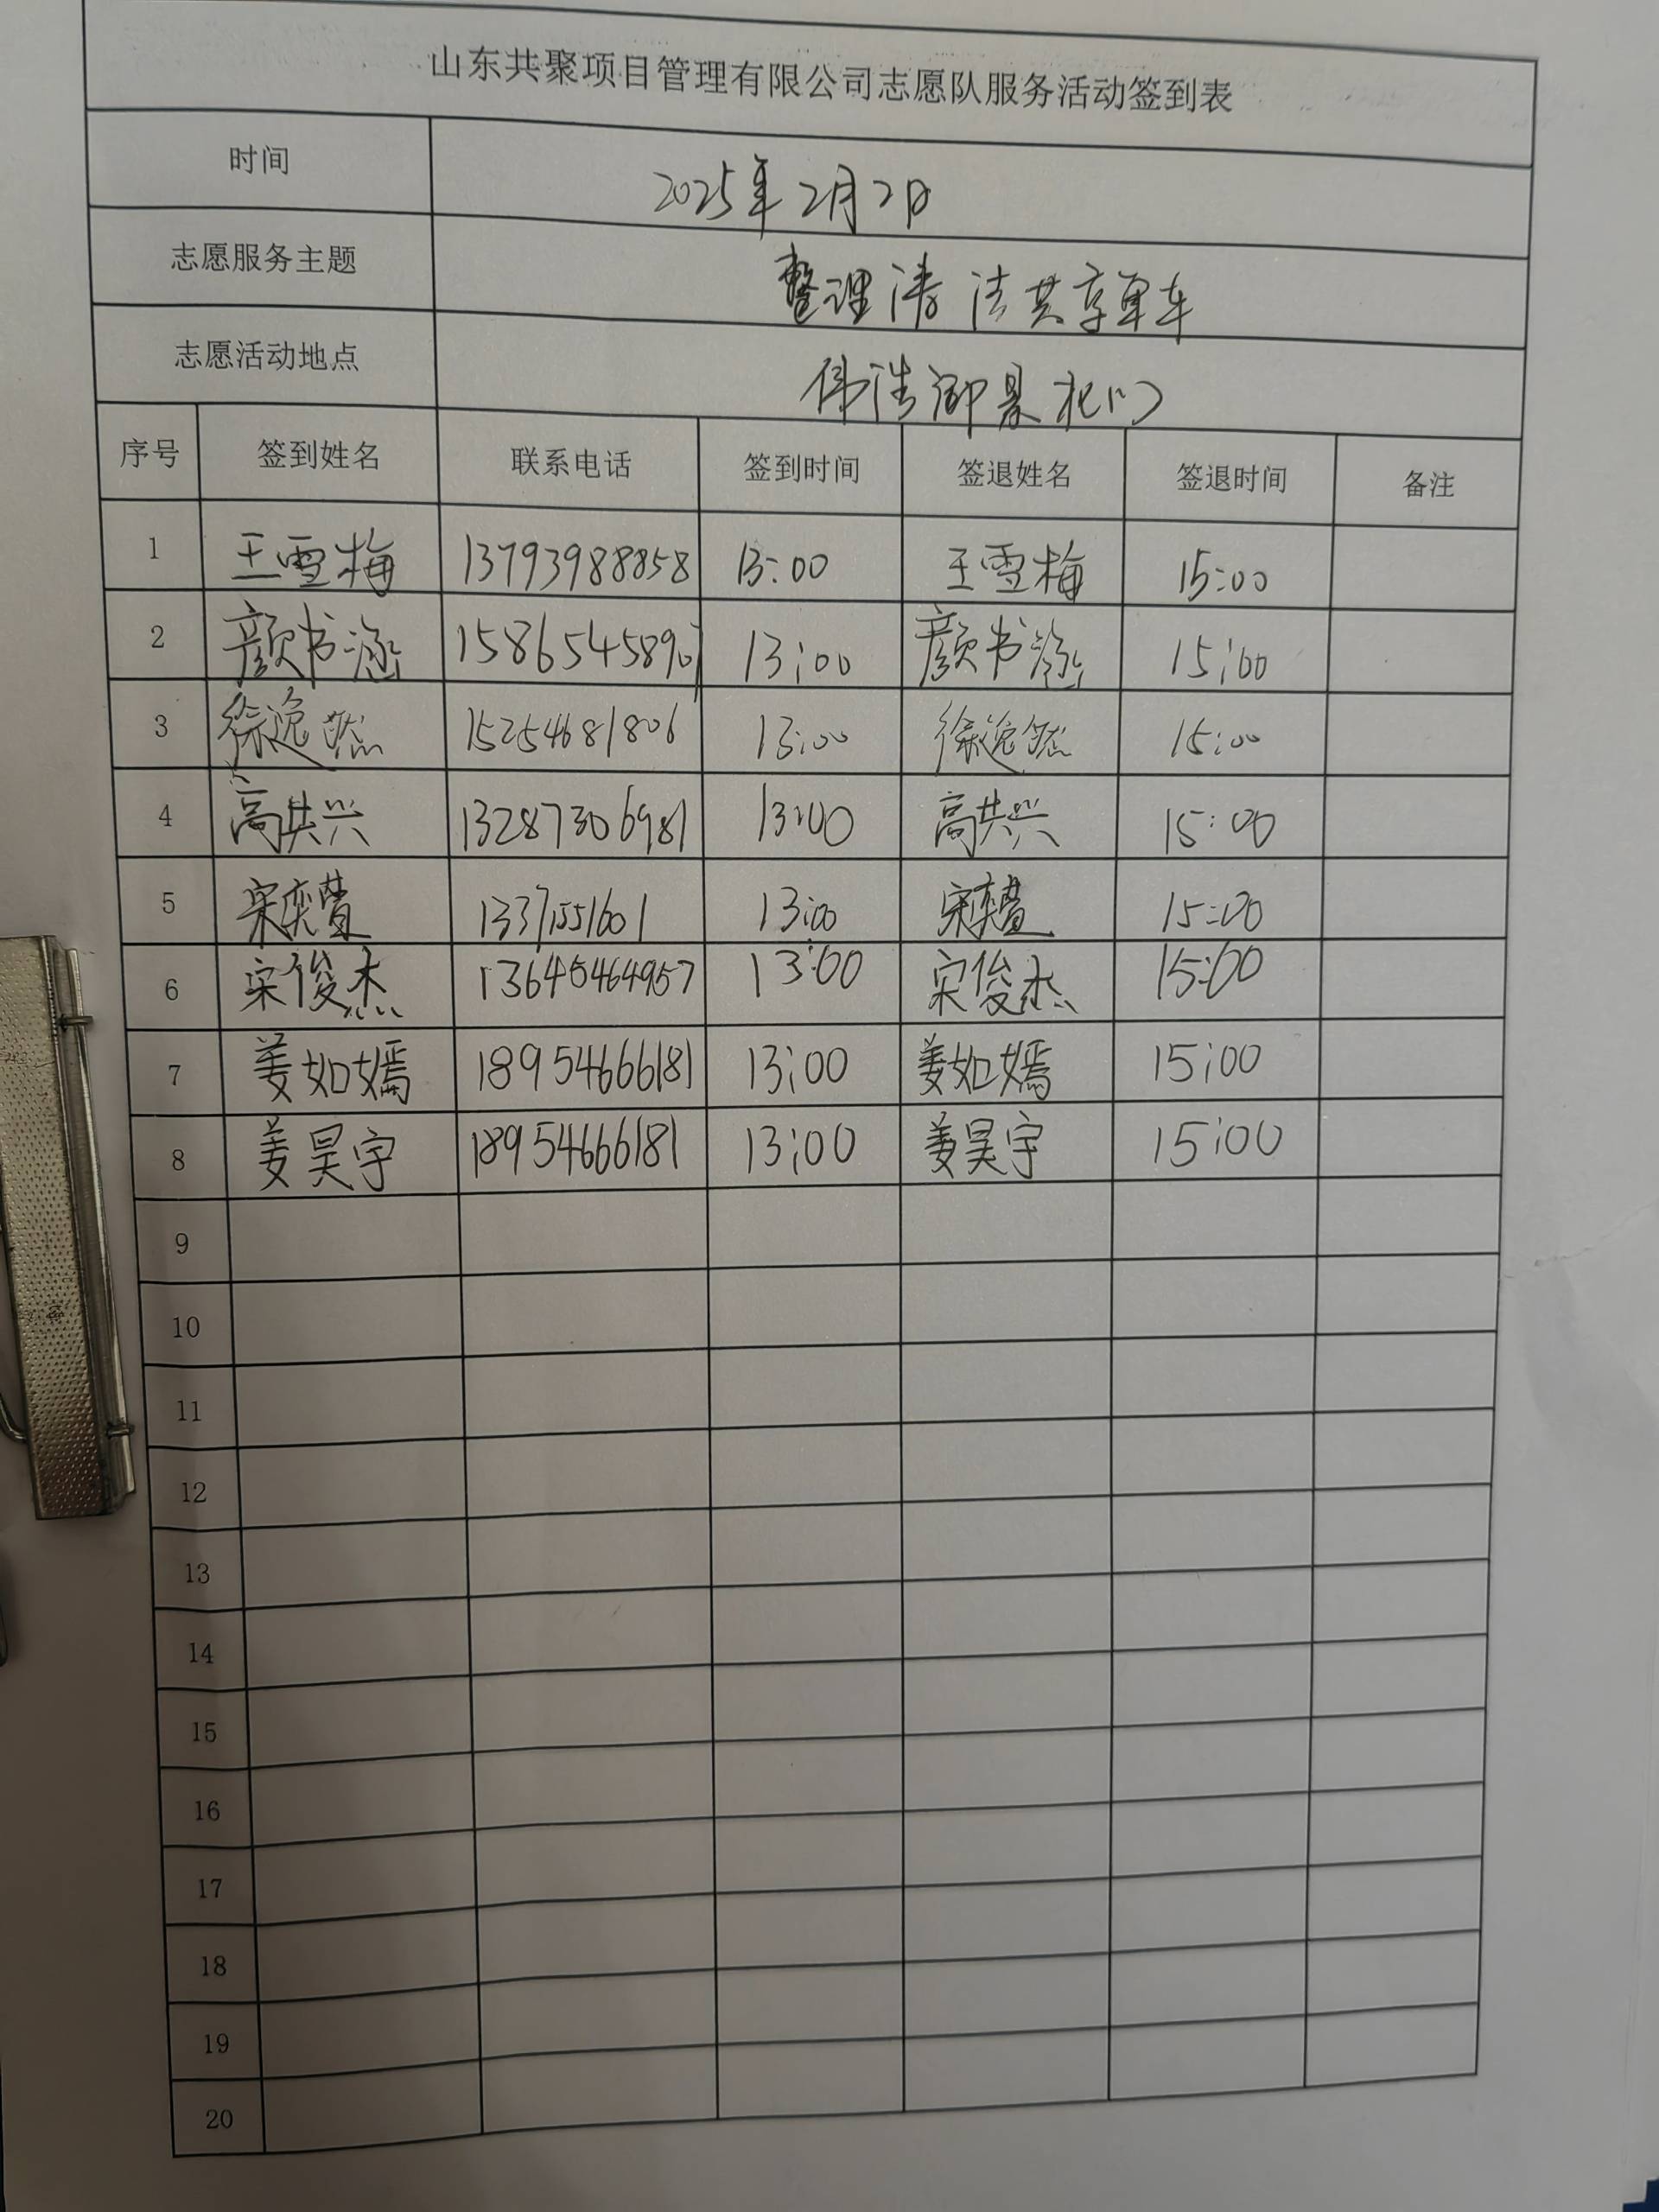 山东共聚项目管理有限公司志愿队服务活动签到表
时间 2025年2月2日
志愿服务主题 整理清洁共享单车
志愿活动地点 伟浩御景北门
序号 签到姓名 联系电话 签到时间 签退姓名 签退时间 备注
1 王雪梅 13793988858 13:00 王雪梅 15:00
2 颜书涵 13:00 颜书涵 15:00
3 徐逸然 15254681806 13:00 徐逸然 15:00
4 高共兴 13287306981 13:00 高共兴 15:00
5 宋奕萱 13371551601 13:00 宋奕萱 15:00
6 宋俊杰 13645464957 13:00 宋俊杰 15:00
7 姜如嫣 18954666181 13:00 姜如嫣 15:00
8 姜昊宇 18954666181 13:00 姜昊宇 15:00
9
10
11
12
13
14
15
16
17
18
19
20